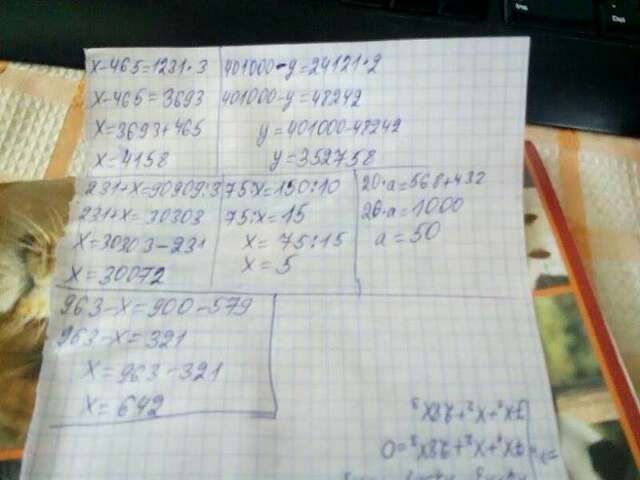 x-465=1231·3
x-465=3693
x=3693+465
x=4158
401000-y=24121·2
401000-y=48242
y=401000-48242
y=352758
231+x=90909:3
231+x=30303
x=30303-231
x=30072
75:x=150:10
75:x=15
x=75:15
x=5
20·a=568+432
20·a=1000
a=50
963-x=900-579
963-x=321
x=963-321
x=642